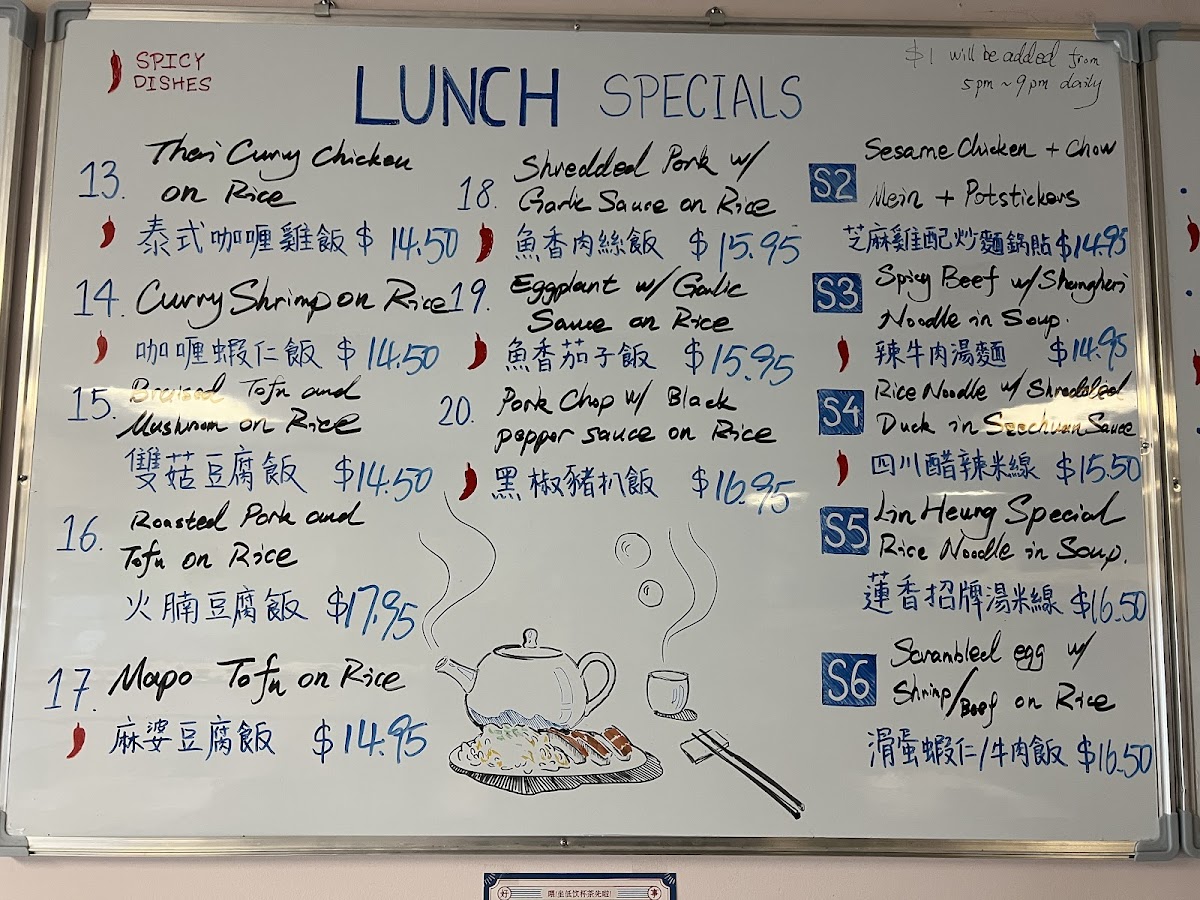 SPICY
DISHES
LUNCH SPECIALS
$1 will be added from
5pm ~ 9pm daily
13. Thai Curry Chicken
on Rice
泰式咖喱雞飯 $14.50
14. Curry Shrimp on Rice
咖喱蝦仁飯 $14.50
15. Braised Tofu and
Mushroom on Rice
雙菇豆腐飯 $14.50
16. Roasted Pork and
Tofu on Rice
火腩豆腐飯 $17.95
17. Mapo Tofu on Rice
麻婆豆腐飯 $14.95
18. Shredded Pork w/
Garlic Sauce on Rice
魚香肉絲飯 $15.95
19. Eggplant w/ Garlic
Sauce on Rice
魚香茄子飯 $15.95
20. Pork Chop w/ Black
pepper sauce on Rice
黑椒豬扒飯 $16.95
S2 Sesame Chicken + Chow
Mein + Potstickers
芝麻雞配炒麵鍋貼 $14.95
S3 Spicy Beef w/ Shanghai
Noodle in Soup.
辣牛肉湯麵 $14.95
S4 Rice Noodle w/ Shredded
Duck in Szechuan Sauce
四川醋辣米線 $15.50
S5 Lin Heung Special
Rice Noodle in Soup.
蓮香招牌湯米線 $16.50
S6 Scrambled egg w/
Shrimp/Beef on Rice
滑蛋蝦仁/牛肉飯 $16.50
好
事